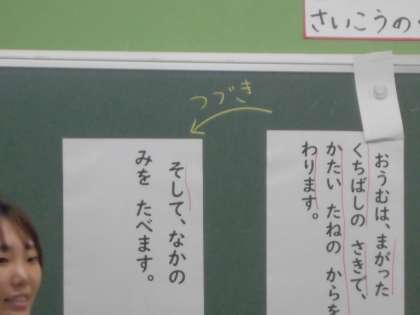 さいこうの
つづき
おうむは、まがった
くちばしの さきで、
かたい たねの からを
わります。
そして、なかの
みを たべます。